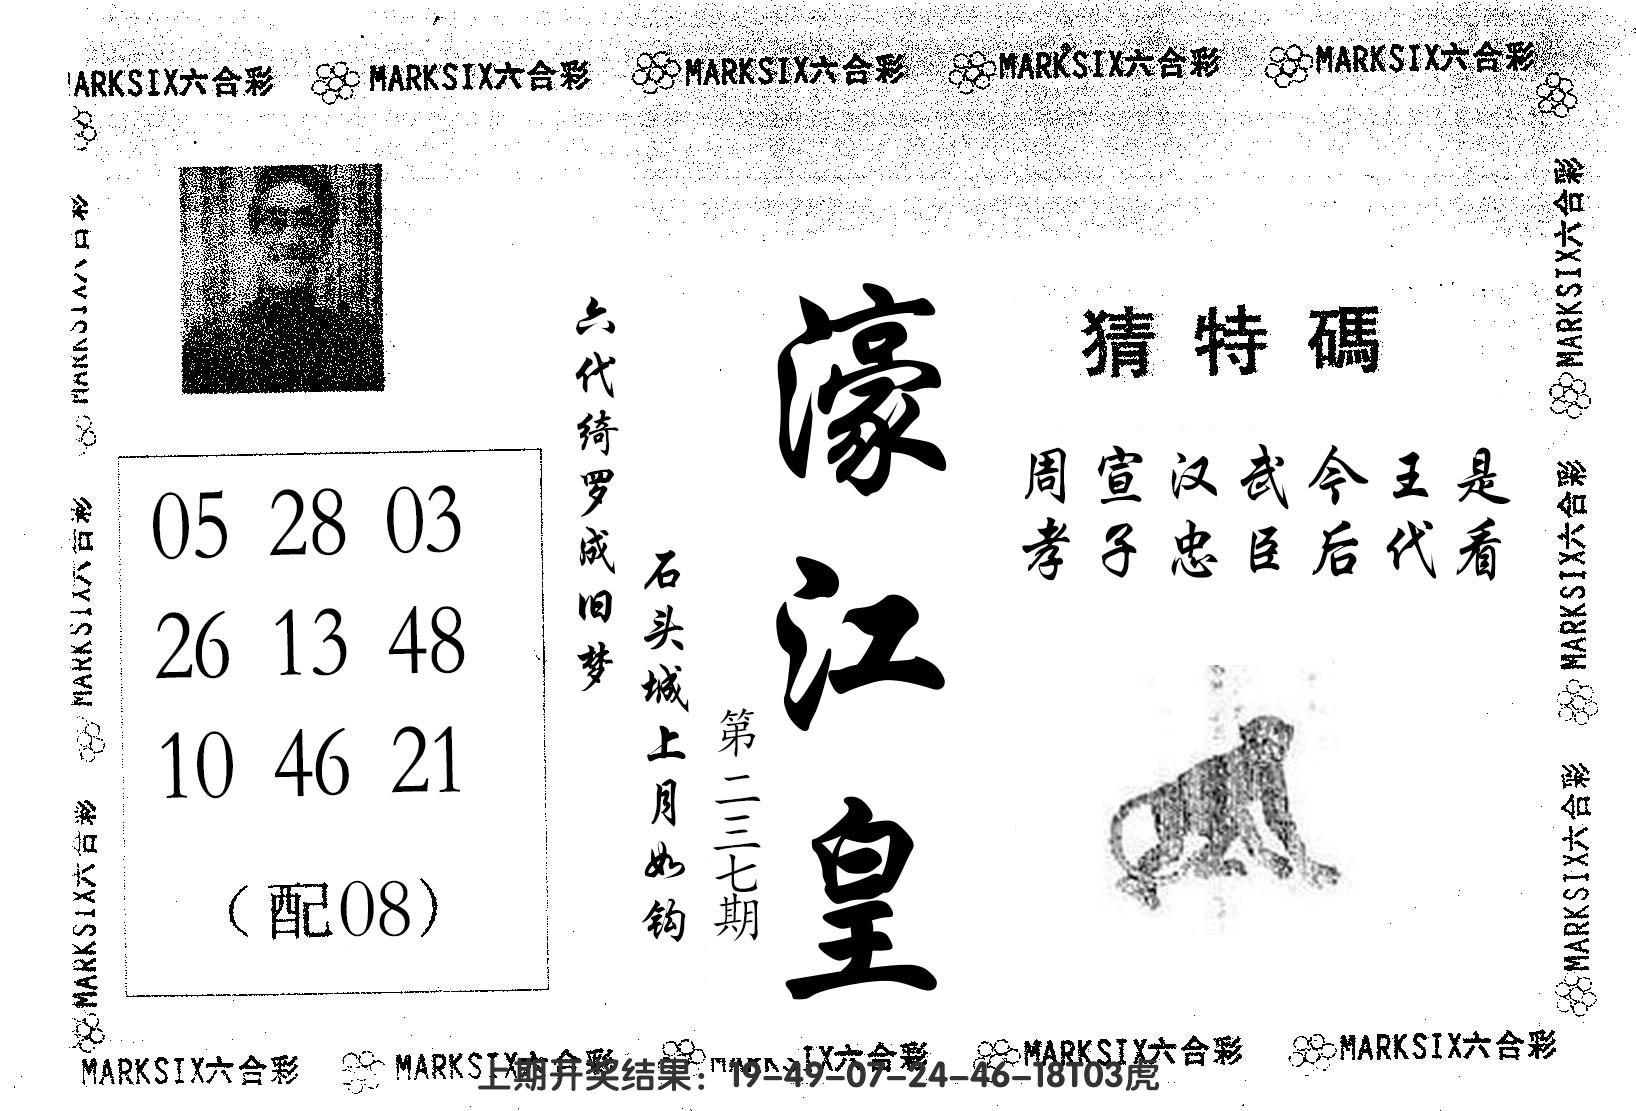 MARKSIX六合彩 MARKSIX六合彩 MARKSIX六合彩 MARKSIX六合彩 MARKSIX六合彩
猜特碼
周宣汉武今王是
孝子忠臣后代看
濠江皇
第二三七期
六代绮罗成旧梦
石头城上月如钩
05 28 03
26 13 48
10 46 21
(配08)
MARKSIX六合彩
MARKSIX六合彩
MARKSIX六合彩
MARKSIX六合彩
MARKSIX六合彩
MARKSIX六合彩
MARKSIX六合彩 MARKSIX六合彩 MARKSIX六合彩 MARKSIX六合彩 MARKSIX六合彩
上期开奖结果：19-49-07-24-46-18T03虎